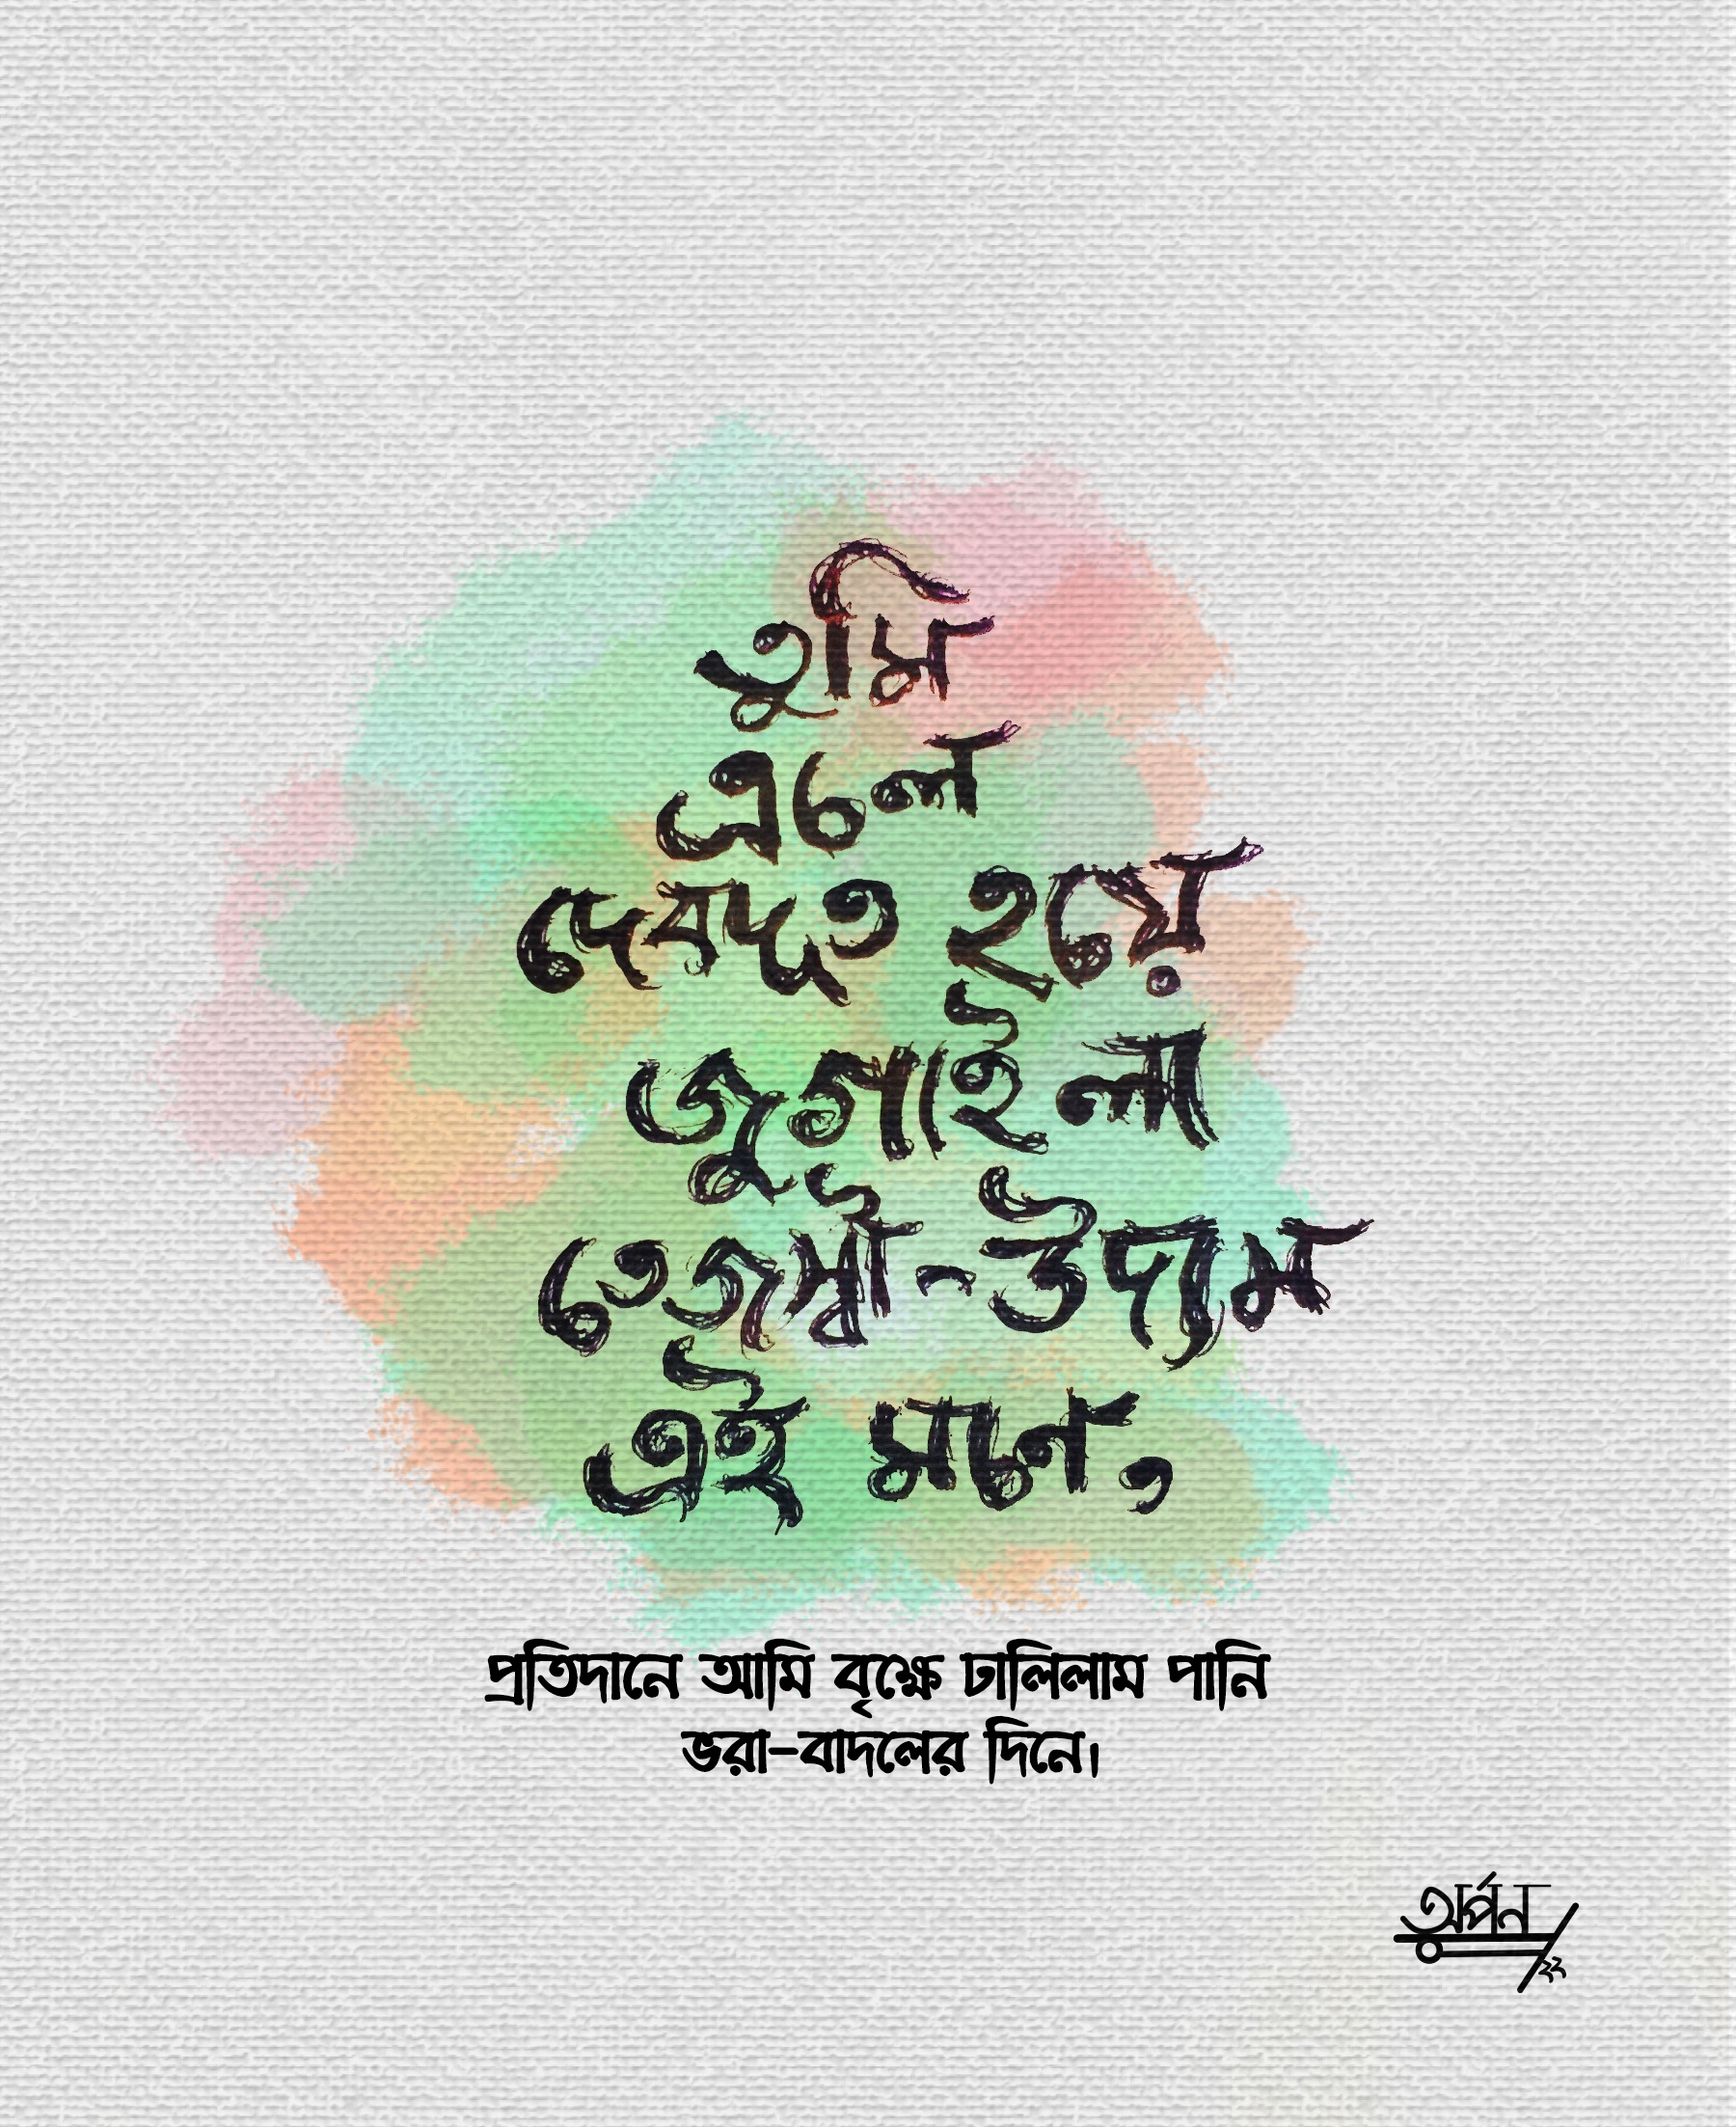 তুমি
এলে
দেবদূত হয়ে
জুগাইলা
তেজস্বী-উদ্যম
এই মনে,
প্রতিদানে আমি বৃক্ষে ঢালিলাম পানি
ভরা-বাদলের দিনে।
অর্পন
২২